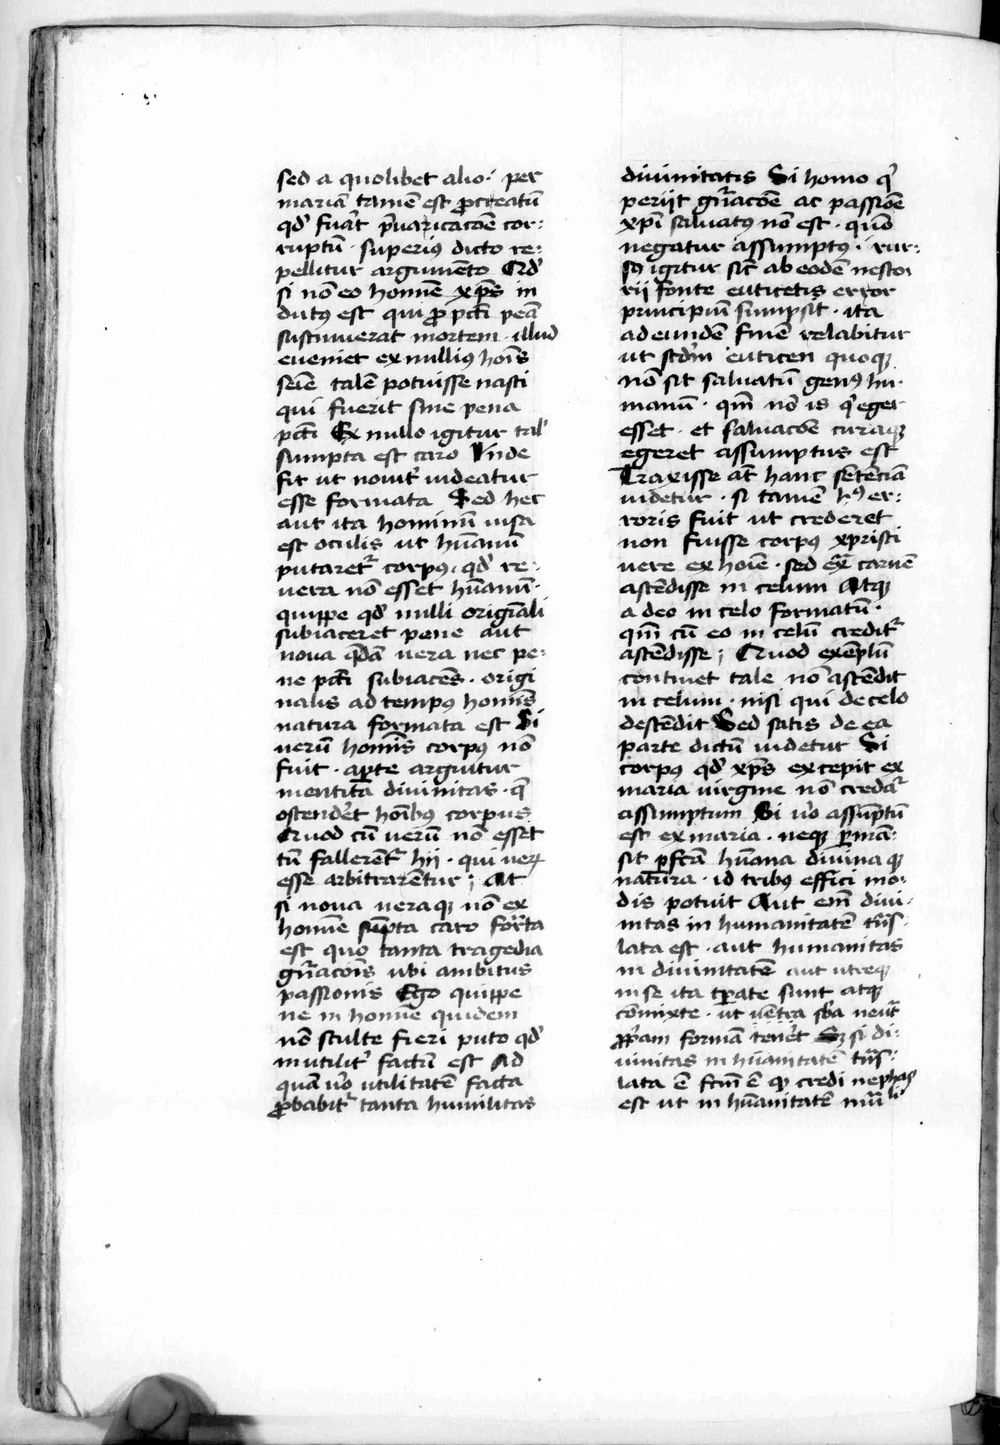 sed a quolibet alio · per
mariā tamē est ꝓcreatū
qd' fuāt p̄uaricacōe cor:
ruptū · superiꝰ dicto re:
pellitur argumēto Qd'
si nō eo homīe xp̄s in
dutꝰ est qui ꝓ pcc̄i penā
sustinuerat mortem · illud
eueniet ex nulliꝰ hoīs
seīe talē potuisse nasci
qui fuerit sine pena
pcc̄i Ex nullo igitur tal'
sumpta est caro Vnde
fit ut nouit' uideatur
esse formata Sed hec
aut ita hominū uisa
est oculis ut hūanū
putaret᷑ corpꝰ · qd' re:
uera nō esset hūanū ·
quippe qd' nulli origīali
subiaceret pene aut
noua q̄dā uera nec pe:
ne pcc̄i subiacēs · origi
nalis ad tempꝰ homīs
natura formata est Si
uerū homīs corpꝰ nō
fuit · aꝑte arguitur
mentita diuinitas · q̄
ostendēt hoībus corpus
Quod cū uerū nō esset
tū fallerēt᷑ hii · qui ueꝝ
esse arbitrarētur ; At
si noua ueraqꝫ nō ex
homīe sūpta caro for̄ta
est quo tanta tragedia
gn̄acōis ubi ambitus
passionis Ego quippe
ne in homīe quidem
nō stulte fieri puto qd'
inutilit' factū est Ad
quā uo utilitatē facta
ꝓbabit᷑ tanta humilitas
diuinitatis Si homo q'
periit gn̄acōe ac passiōe
xp̄i saluatꝰ nō est · quō
negatur assumptꝰ · rur:
sꝰ igitur sic̄ ab eodē nesto
rii fonte euticetis error
principiū sumpsit · ita
ad eundē finē relabitur
ut scd̄m euticen quoqꝫ
nō sit saluatū genꝰ hu·
manū · qm̄ nō is q' eger
esset · et saluacōe curaqꝫ
egeret assumptus est
Traxisse at̄ hanc sētēciā
uidetur · si tamē hꝰ er:
roris fuit ut crederet
non fuisse corpꝰ xpristi
uere ex hoīe · sed ext̄ carnē
ascēdisse in celum Atqꝫ
a deo in celo formatū ·
qm̄ cū eo in celū credit᷑
ascēdisse ; Quod exēplū
continet tale nō ascēdit
in celum · nisi qui de celo
descēdit Sed satis de ea
parte dictū uidetur Si
corpꝰ qd' xp̄s excepit ex
maria uirgine nō credat᷑
assumptum Si uo assūptū
est ex maria · neqꝫ ꝑmā:
sit ꝑfcā hūana diuinaqꝫ
natura · id tribꝰ effici mo·
dis potuit Aut em̄ diui·
nitas in humanitatē trn̄s·
lata est · aut humanitas
in diuinitatē aut utreqꝫ
in se ita tꝑate sunt atqꝫ
cōmixte · ut
ꝓpriam formā tenēt Sꝫ si di:
uinitas in hūanitatē trn̄s·
lata ē fcm̄ ē qꝫ credi nephas
est ut in hūanitatē